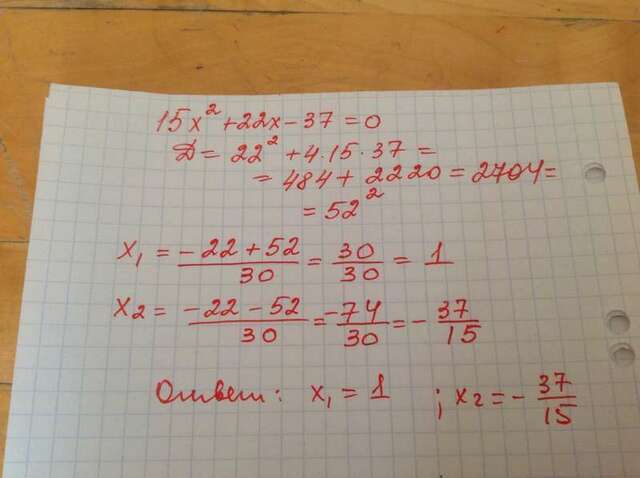 15x² + 22x - 37 = 0
Д = 22² + 4·15·37 =
= 484 + 2220 = 2704 =
= 52²
x₁ = (-22 + 52)/30 = 30/30 = 1
x₂ = (-22 - 52)/30 = -74/30 = -37/15
Ответ: x₁ = 1 ; x₂ = -37/15